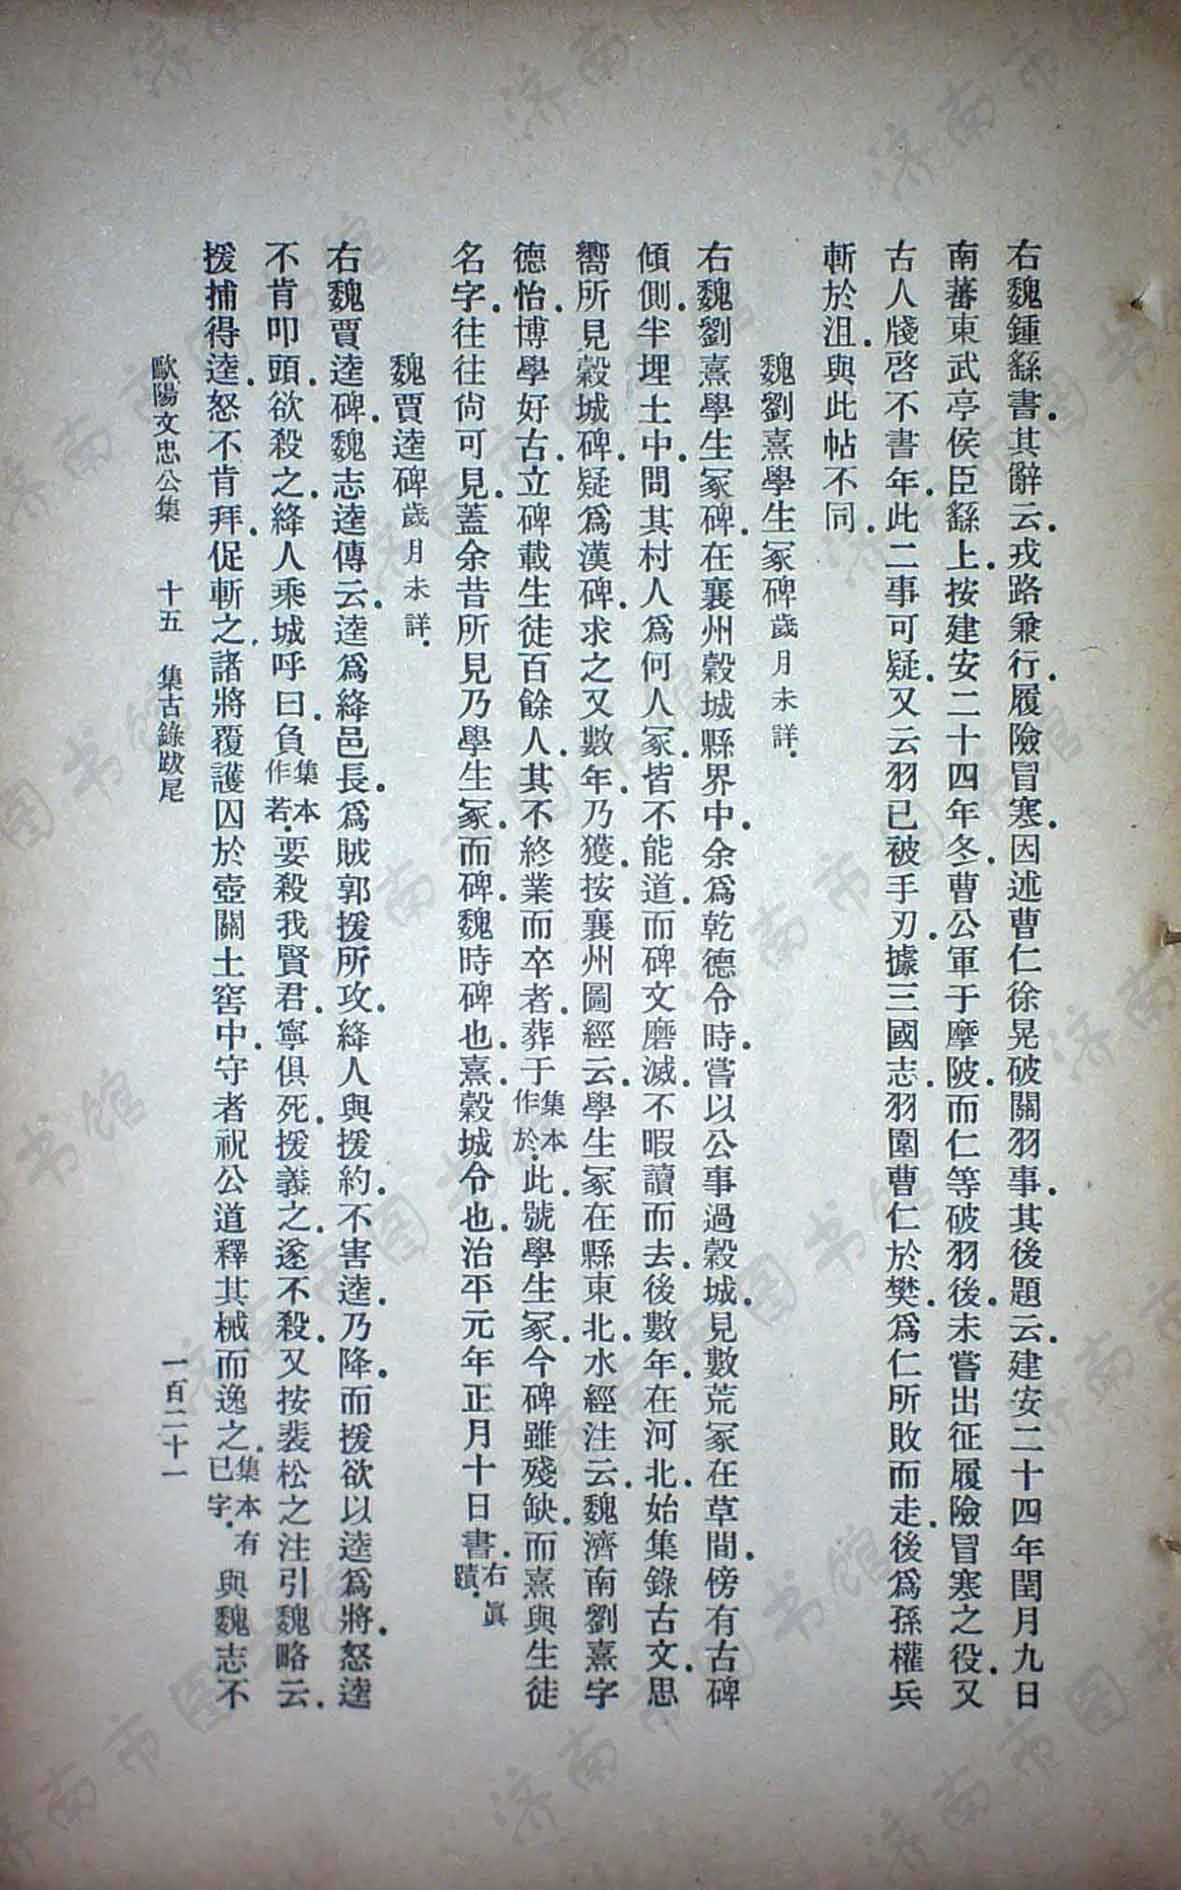 右魏鍾繇書.其辭云.戎路兼行.履險冒寒.因述曹仁徐晃破關羽事.其後題云.建安二十四年閏月九日
南蕃東武亭侯臣繇上.按建安二十四年冬.曹公軍于摩陂.而仁等破羽後.未嘗出征履險冒寒之役.又
古人牋啓不書年.此二事可疑.又云羽已被手刃.據三國志.羽圍曹仁於樊.爲仁所敗而走.後爲孫權兵
斬於沮.與此帖不同.
魏劉熹學生冢碑歲月未詳.
右魏劉熹學生冢碑.在襄州穀城縣界中.余爲乾德令時.嘗以公事過穀城.見數荒冢在草間.傍有古碑
傾側.半埋土中.問其村人爲何人冢.皆不能道.而碑文磨滅.不暇讀而去.後數年.在河北.始集錄古文.思
嚮所見穀城碑.疑爲漢碑.求之又數年.乃獲.按襄州圖經云.學生冢在縣東北.水經注云.魏濟南劉熹字
德怡.博學好古.立碑載生徒百餘人.其不終業而卒者.葬于集本作於.此.號學生冢.今碑雖殘缺.而熹與生徒
名字.往往尙可見.蓋余昔所見乃學生冢.而碑.魏時碑也.熹.穀城令也.治平元年正月十日書.右眞蹟.
魏賈逵碑歲月未詳.
右魏賈逵碑.魏志逵傳云.逵爲絳邑長.爲賊郭援所攻.絳人與援約.不害逵.乃降.而援欲以逵爲將.怒逵
不肯叩頭.欲殺之.絳人乘城呼曰.負集本作若.要殺我賢君.寧俱死.援義之.遂不殺.又按裴松之注引魏略云.
援捕得逵.怒不肯拜.促斬之.諸將覆護囚於壺關土窖中.守者祝公道釋其械而逸之.集本有已字.與魏志不
歐陽文忠公集 十五 集古錄跋尾 一百二十一
济南市图书馆